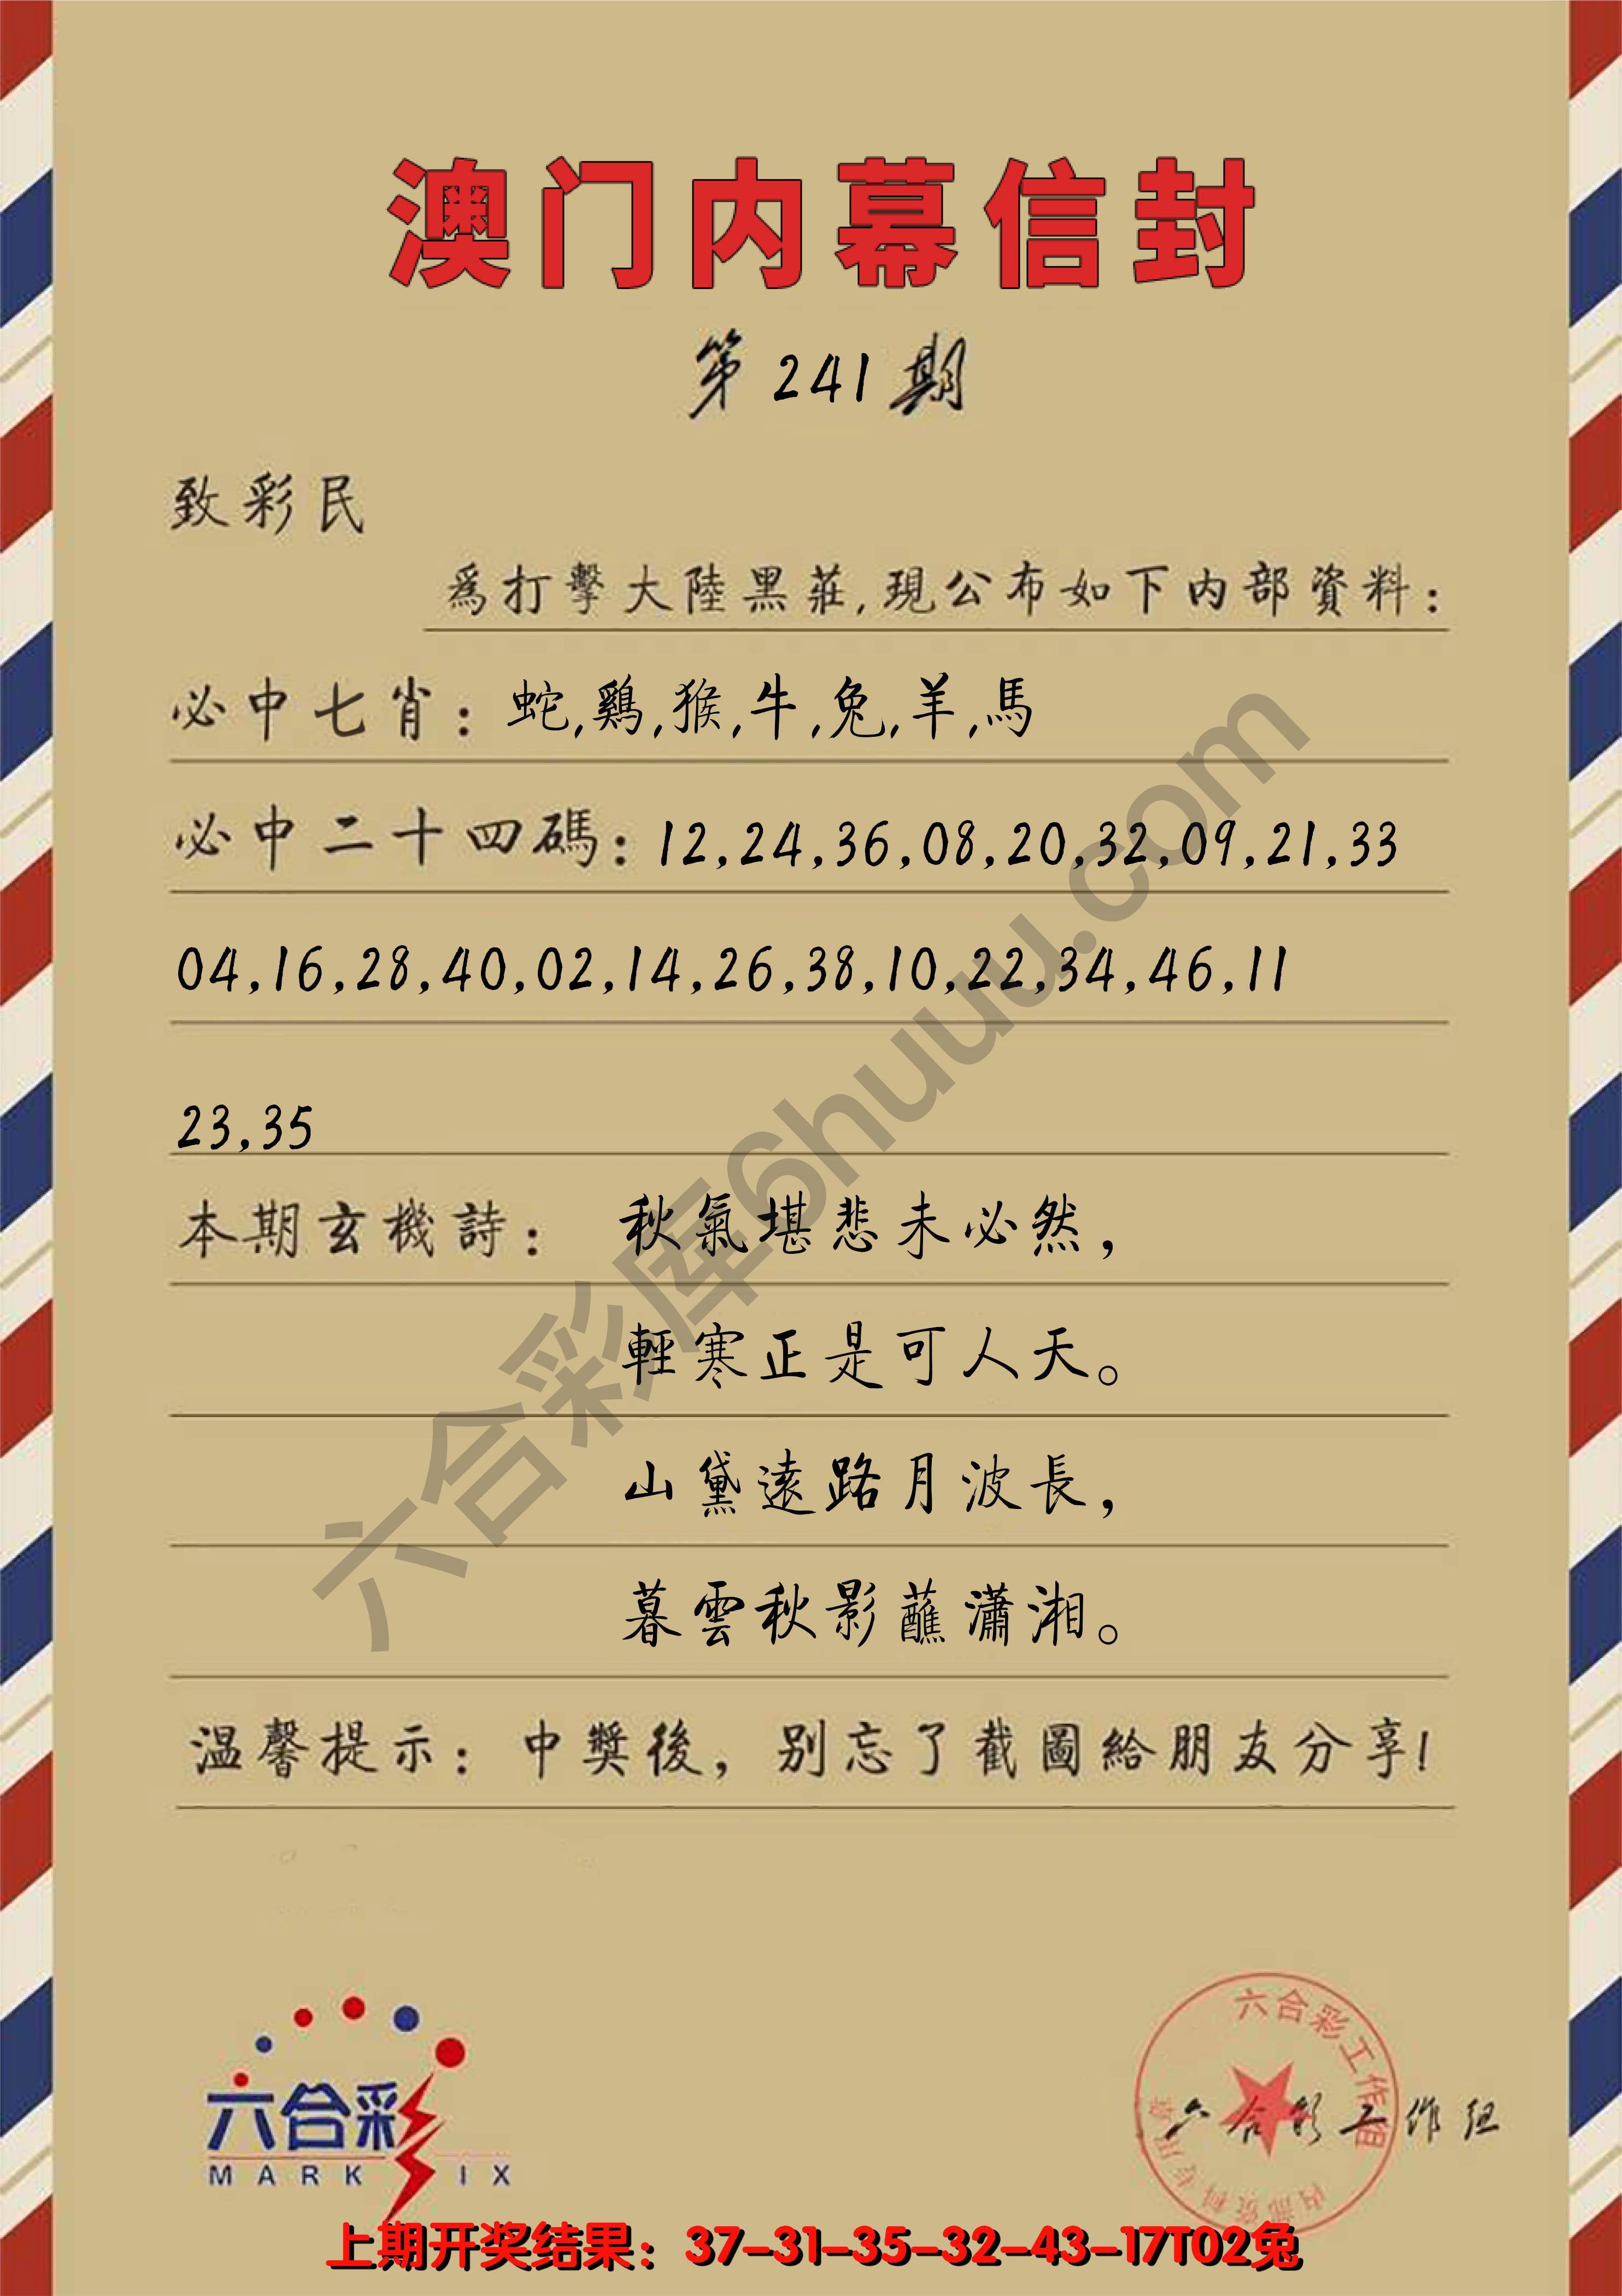 澳门内幕信封
第241期
致彩民
爲打擊大陸黑莊,現公布如下内部資料:
必中七肖: 蛇,鷄,猴,牛,兔,羊,馬
必中二十四碼: 12,24,36,08,20,32,09,21,33
04,16,28,40,02,14,26,38,10,22,34,46,11
23,35
本期玄機詩: 秋氣堪悲未必然,
輕寒正是可人天。
山黛遠路月波長,
暮雲秋影蘸瀟湘。
温馨提示: 中獎後, 别忘了截圖給朋友分享!
六合彩库6huuu.com
六合彩
MARK IX
六合彩工作组
内部资料专用章
六合彩工作组
上期开奖结果: 37-31-35-32-43-17T02兔